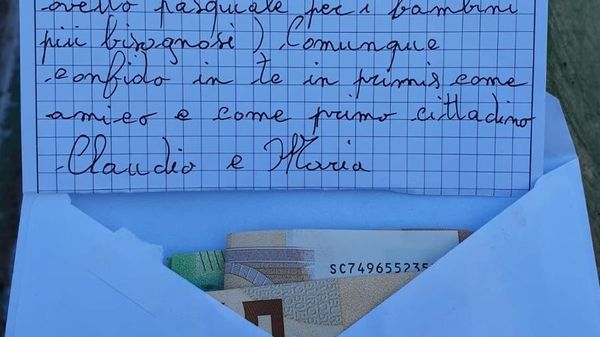 ovetto pasquale per i bambini
più bisognosi) Comunque
confido in te in primis come
amico e come primo cittadino
Claudio e Maria
SC749655235